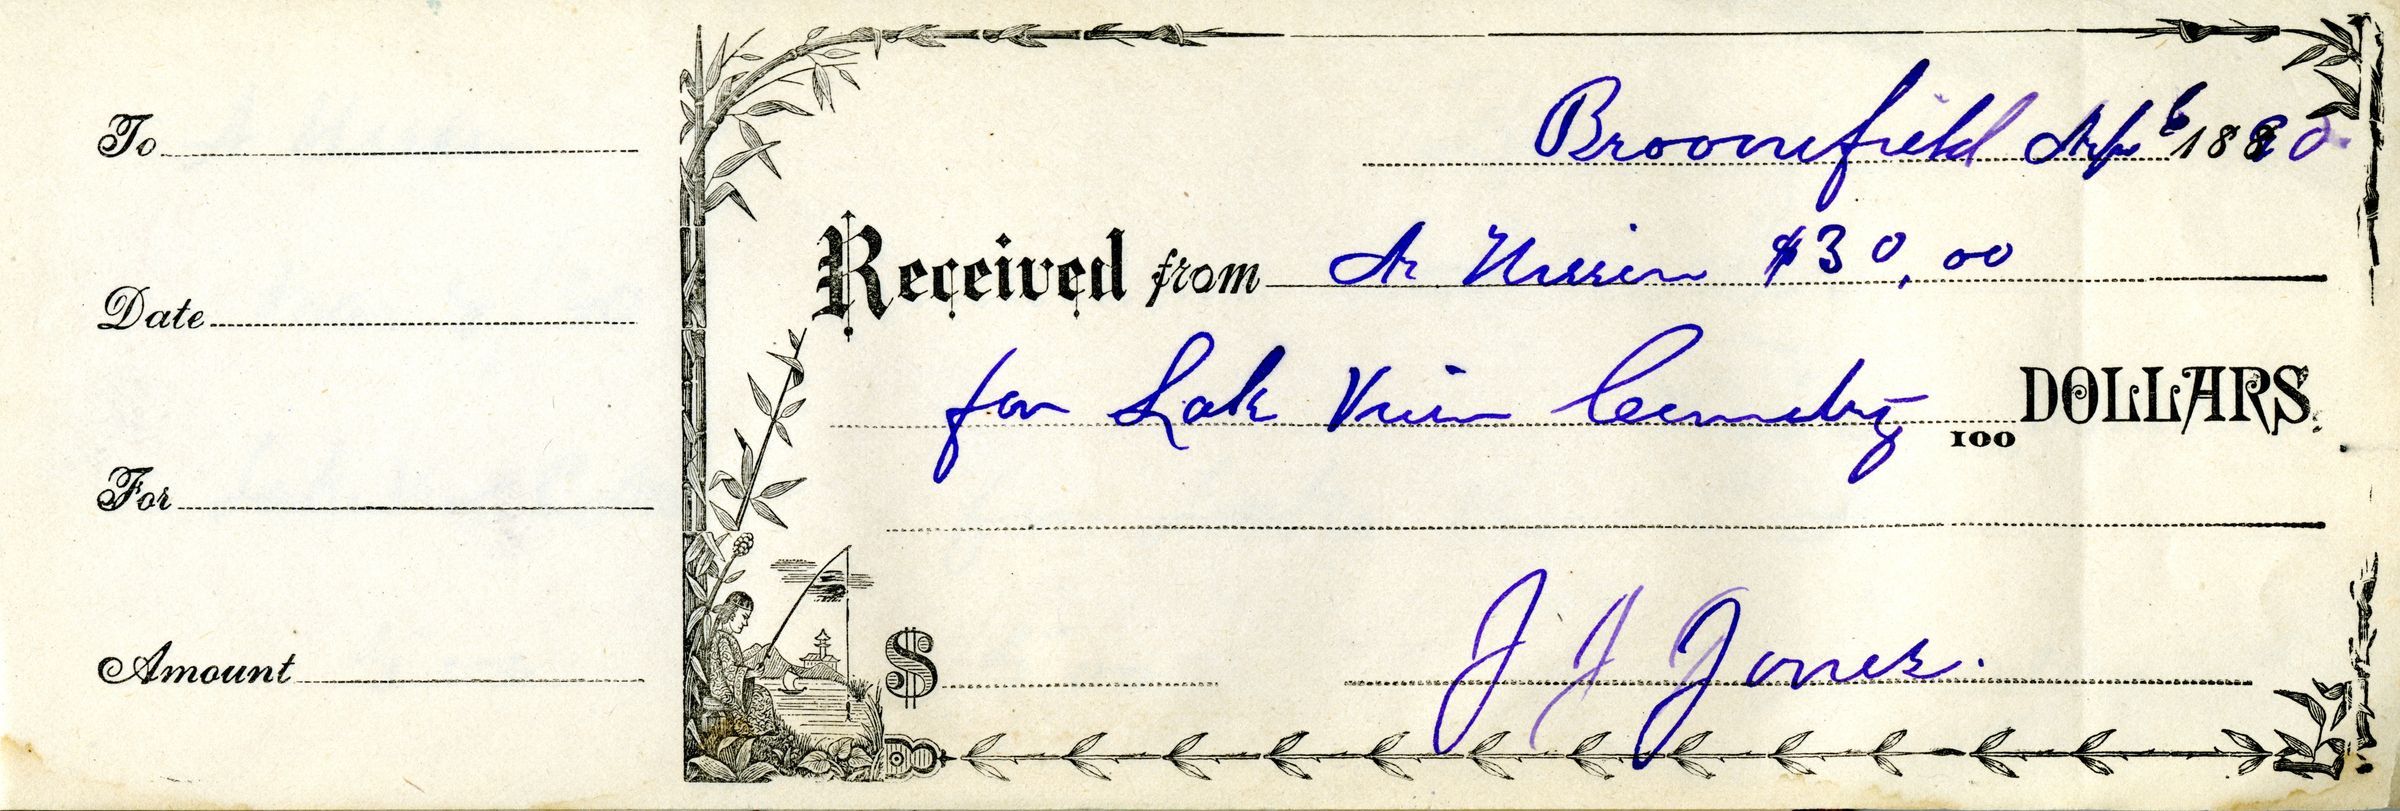 To
Date
For
Amount
Broomfield 6 1890
Received from $30.00
for Lak View Cemetry 100 DOLLARS
$ J J Jones.